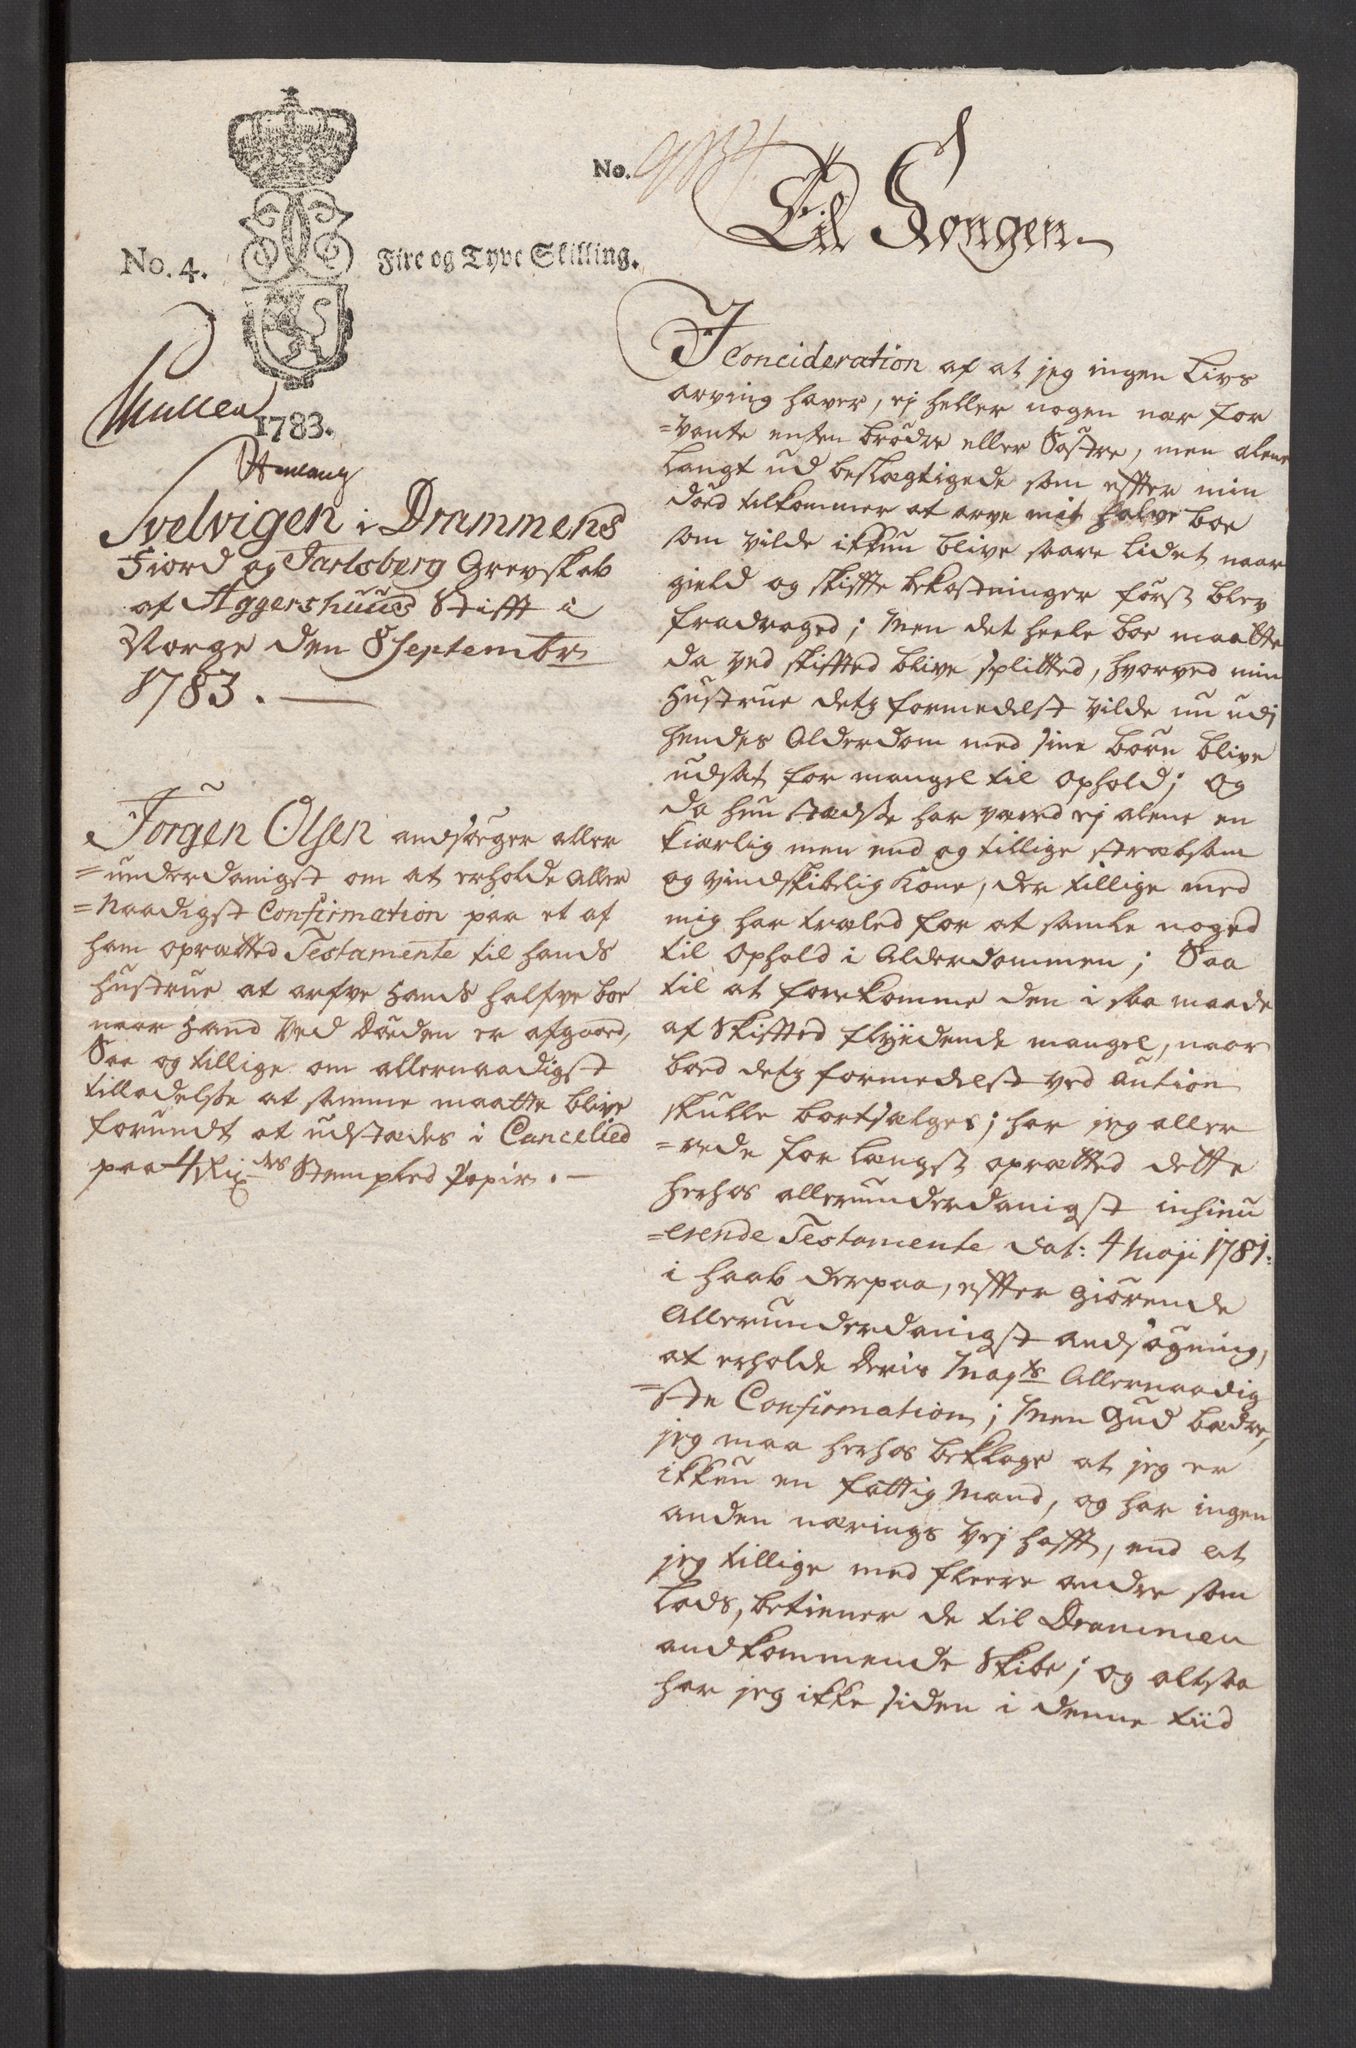 No. 4.
Fire og Tyve Skilling.
1783.
Svelvigen i Drammens
Fiord og Jarlsberg Grevskab
af Aggershuus Stifft i
Norge den 8 Septembr
1783. —
Jørgen Olsen andsøger aller
=underdanigst om at erholde Aller
=Naadigst Confirmation paa et af
ham oprætted Testamente til hands
hustrue at arfve Hands halfve boe
naar Hand Ved Døden er afgaaed,
Saa og tillige om allernaadigst
tilladelsse at samme maatte blive
forundt at udstædes i Cancelied
paa 4 Rixdrs Stempled Papir. —
No. 9134
Til Kongen.
I Concideration af at jeg ingen Livs
arving haver, ej heller nogen nær for
=vante enten brødre eller Søstre, men alene
Langt ud beslægtigede som effter min
død tilkommer at arve mit halve boe
som vilde ikkun blive saare Lidet naar
gield og skiffte bekostninger først blev
fradraged; Men det heele boe maatte
da ved skifted blive splitted, hvorved min
Hustrue detz formedelst vilde nu udj
hendes Alderdom med sine børn blive
udsat for mangel til Ophold; Og
da hun stædsse har været ej alene en
kiærlig men end og tillige stræbsom
og vindskibelig Kone, der tillige med
mig har træled for at samle noged
til Ophold i Alderdommen; Saa
til at forekomme den i saa maade
af Skifted flyydende mangel, naar
boed detz formedelst ved Aution
skulle bortsælges; har jeg aller
=rede for Længst oprætted dette
herhos allerunderdanigst inhinu
=erende Testamente dat: 4 Maji 1781:
i haab derpaa, effter giørende
Allerunderdanigst andsøgning,
at erholde Deris Mayts Allernaadig
=ste Confirmation; Men Gud bædre,
jeg maa herhos beklage at jeg er
ikkun en fattig Mand, og har ingen
anden nærings Vej hafft, end at
jeg tillige med fleere andre som
Lods, betiener de til Drammen
andkommende Skibe; og altsaa
har jeg ikke siden i denne tiid